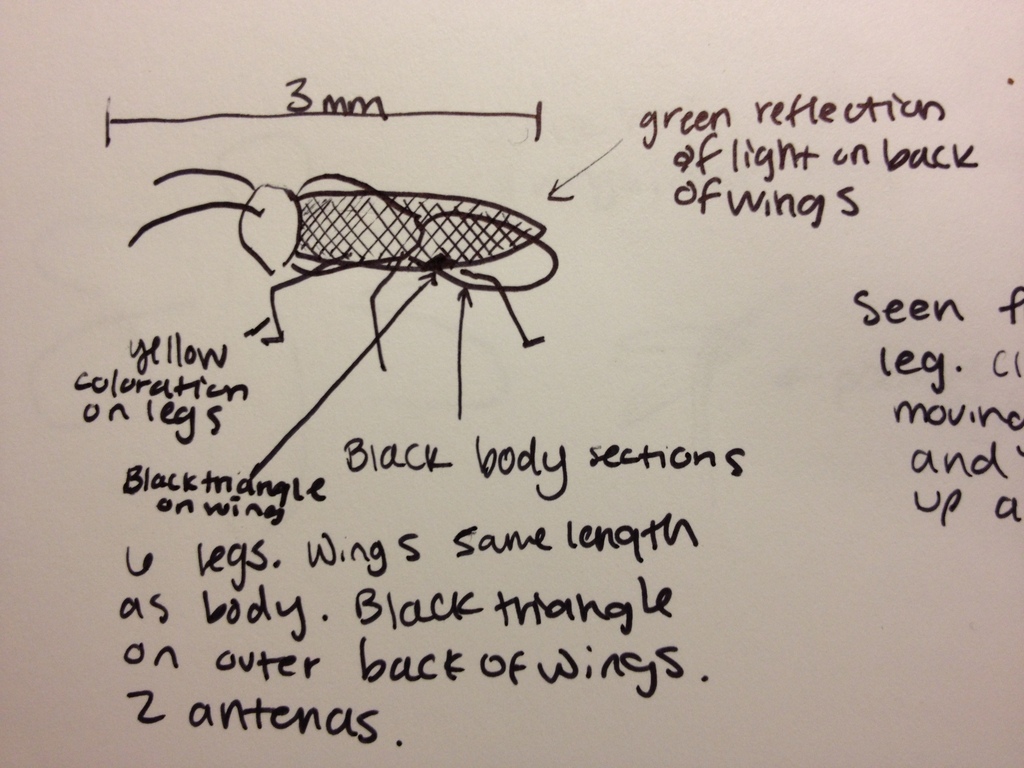 3mm
green reflection
of light on back
of wings
yellow
coloration
on legs
Black triangle
on wing
Black body sections
6 legs. Wings same length
as body. Black triangle
on outer back of wings.
2 antenas.
Seen f
leg. Cl
moving
and
up a